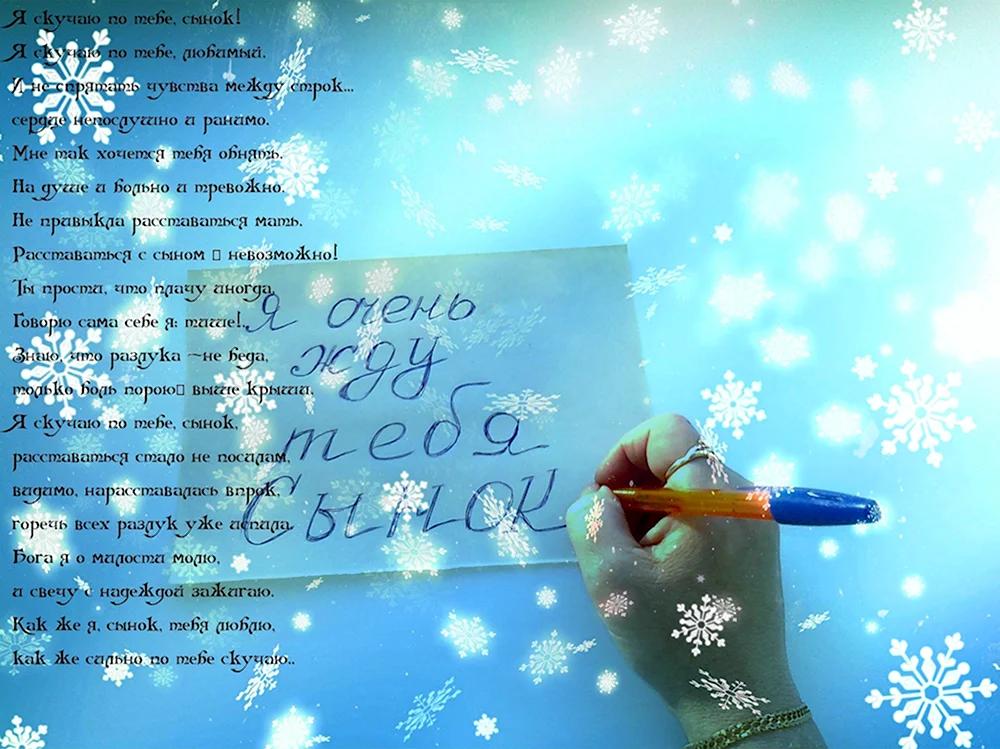 Я скучаю по тебе, сынок!
Я скучаю по тебе, любимый.
И не спрятать чувства между строк...
сердце непослушно и ранимо.
Мне так хочется тебя обнять.
На душе и больно и тревожно.
Не привыкла расставаться мать.
Расставаться с сыном □ невозможно!
Ты прости, что плачу иногда,
Говорю сама себе я: тише!..
Знаю, что разлука —не беда,
только боль порою□ выше крыши.
Я скучаю по тебе, сынок,
расставаться стало не посилам,
видимо, нарасставалась впрок,
горечь всех разлук уже испила.
Бога я о милости молю,
и свечу с надеждой зажигаю.
Как же я, сынок, тебя люблю,
как же сильно по тебе скучаю..
Я очень
жду
тебя
Сынок